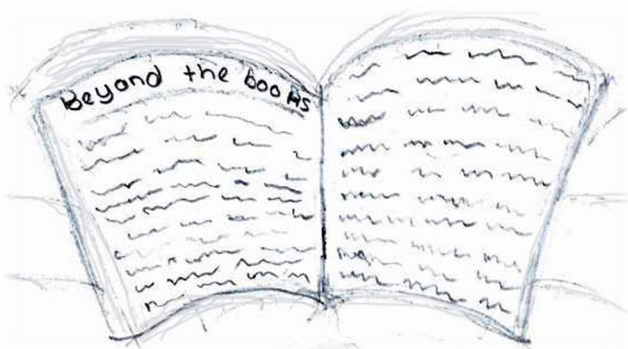 Beyond the books